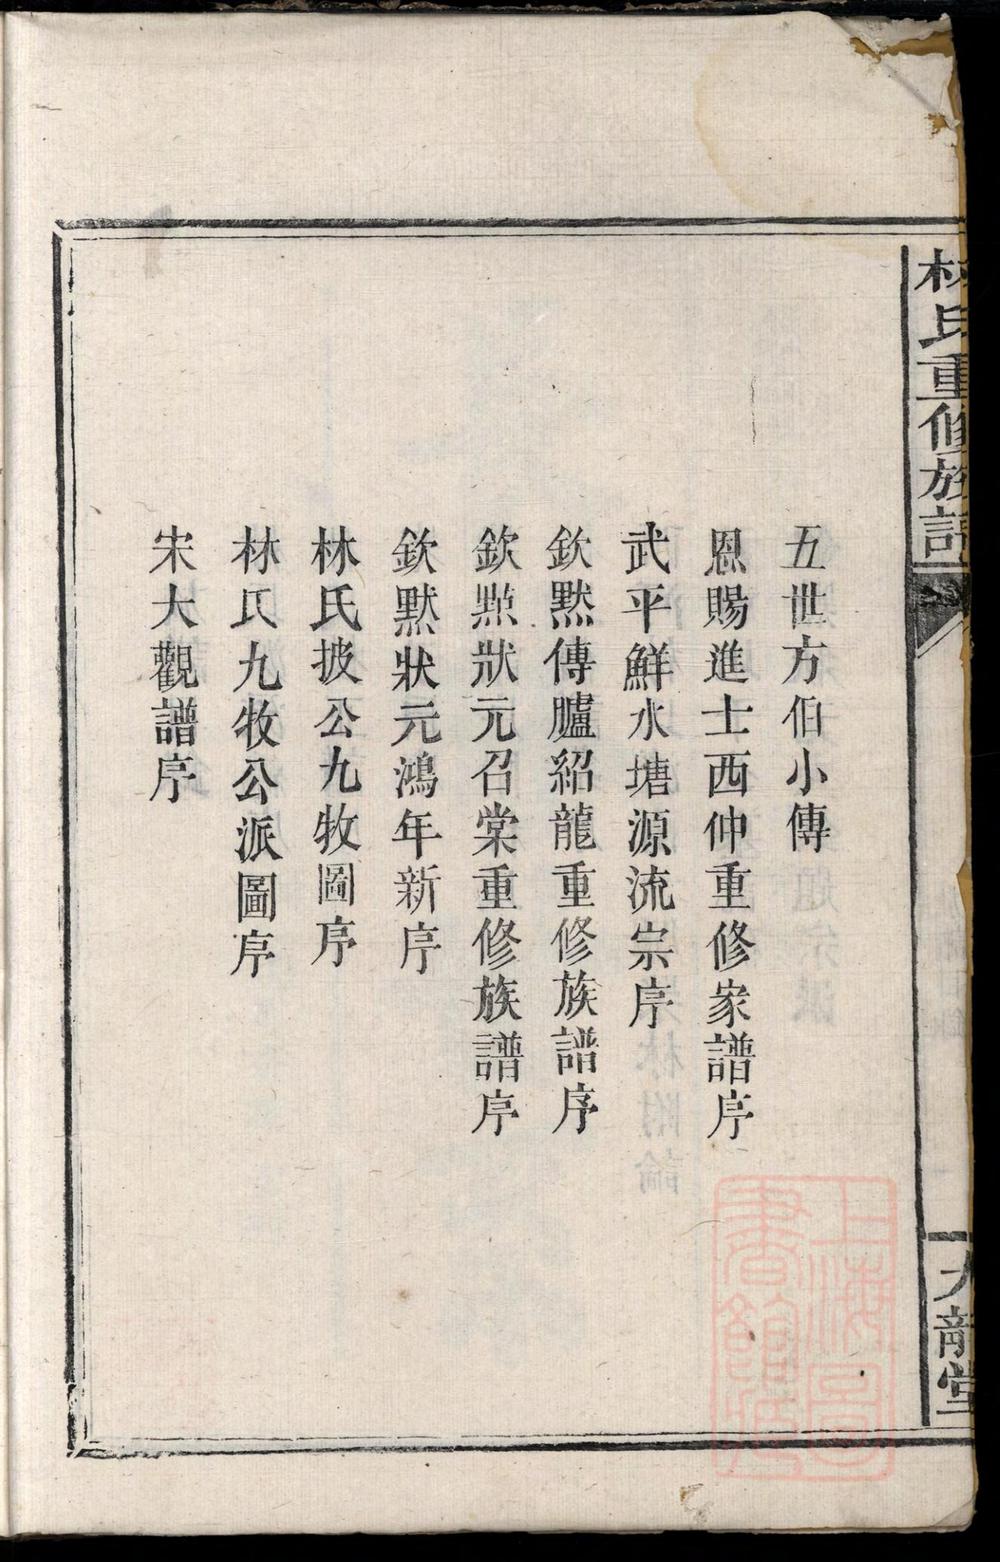 林氏重修族譜
九龍堂
五世方伯小傳
恩賜進士西仲重修家譜序
武平鮮水塘源流宗序
欽默傳臚紹龍重修族譜序
欽點狀元召棠重修族譜序
欽默狀元鴻年新序
林氏披公九牧圖序
林氏九牧公派圖序
宋大觀譜序
上海圖書館藏